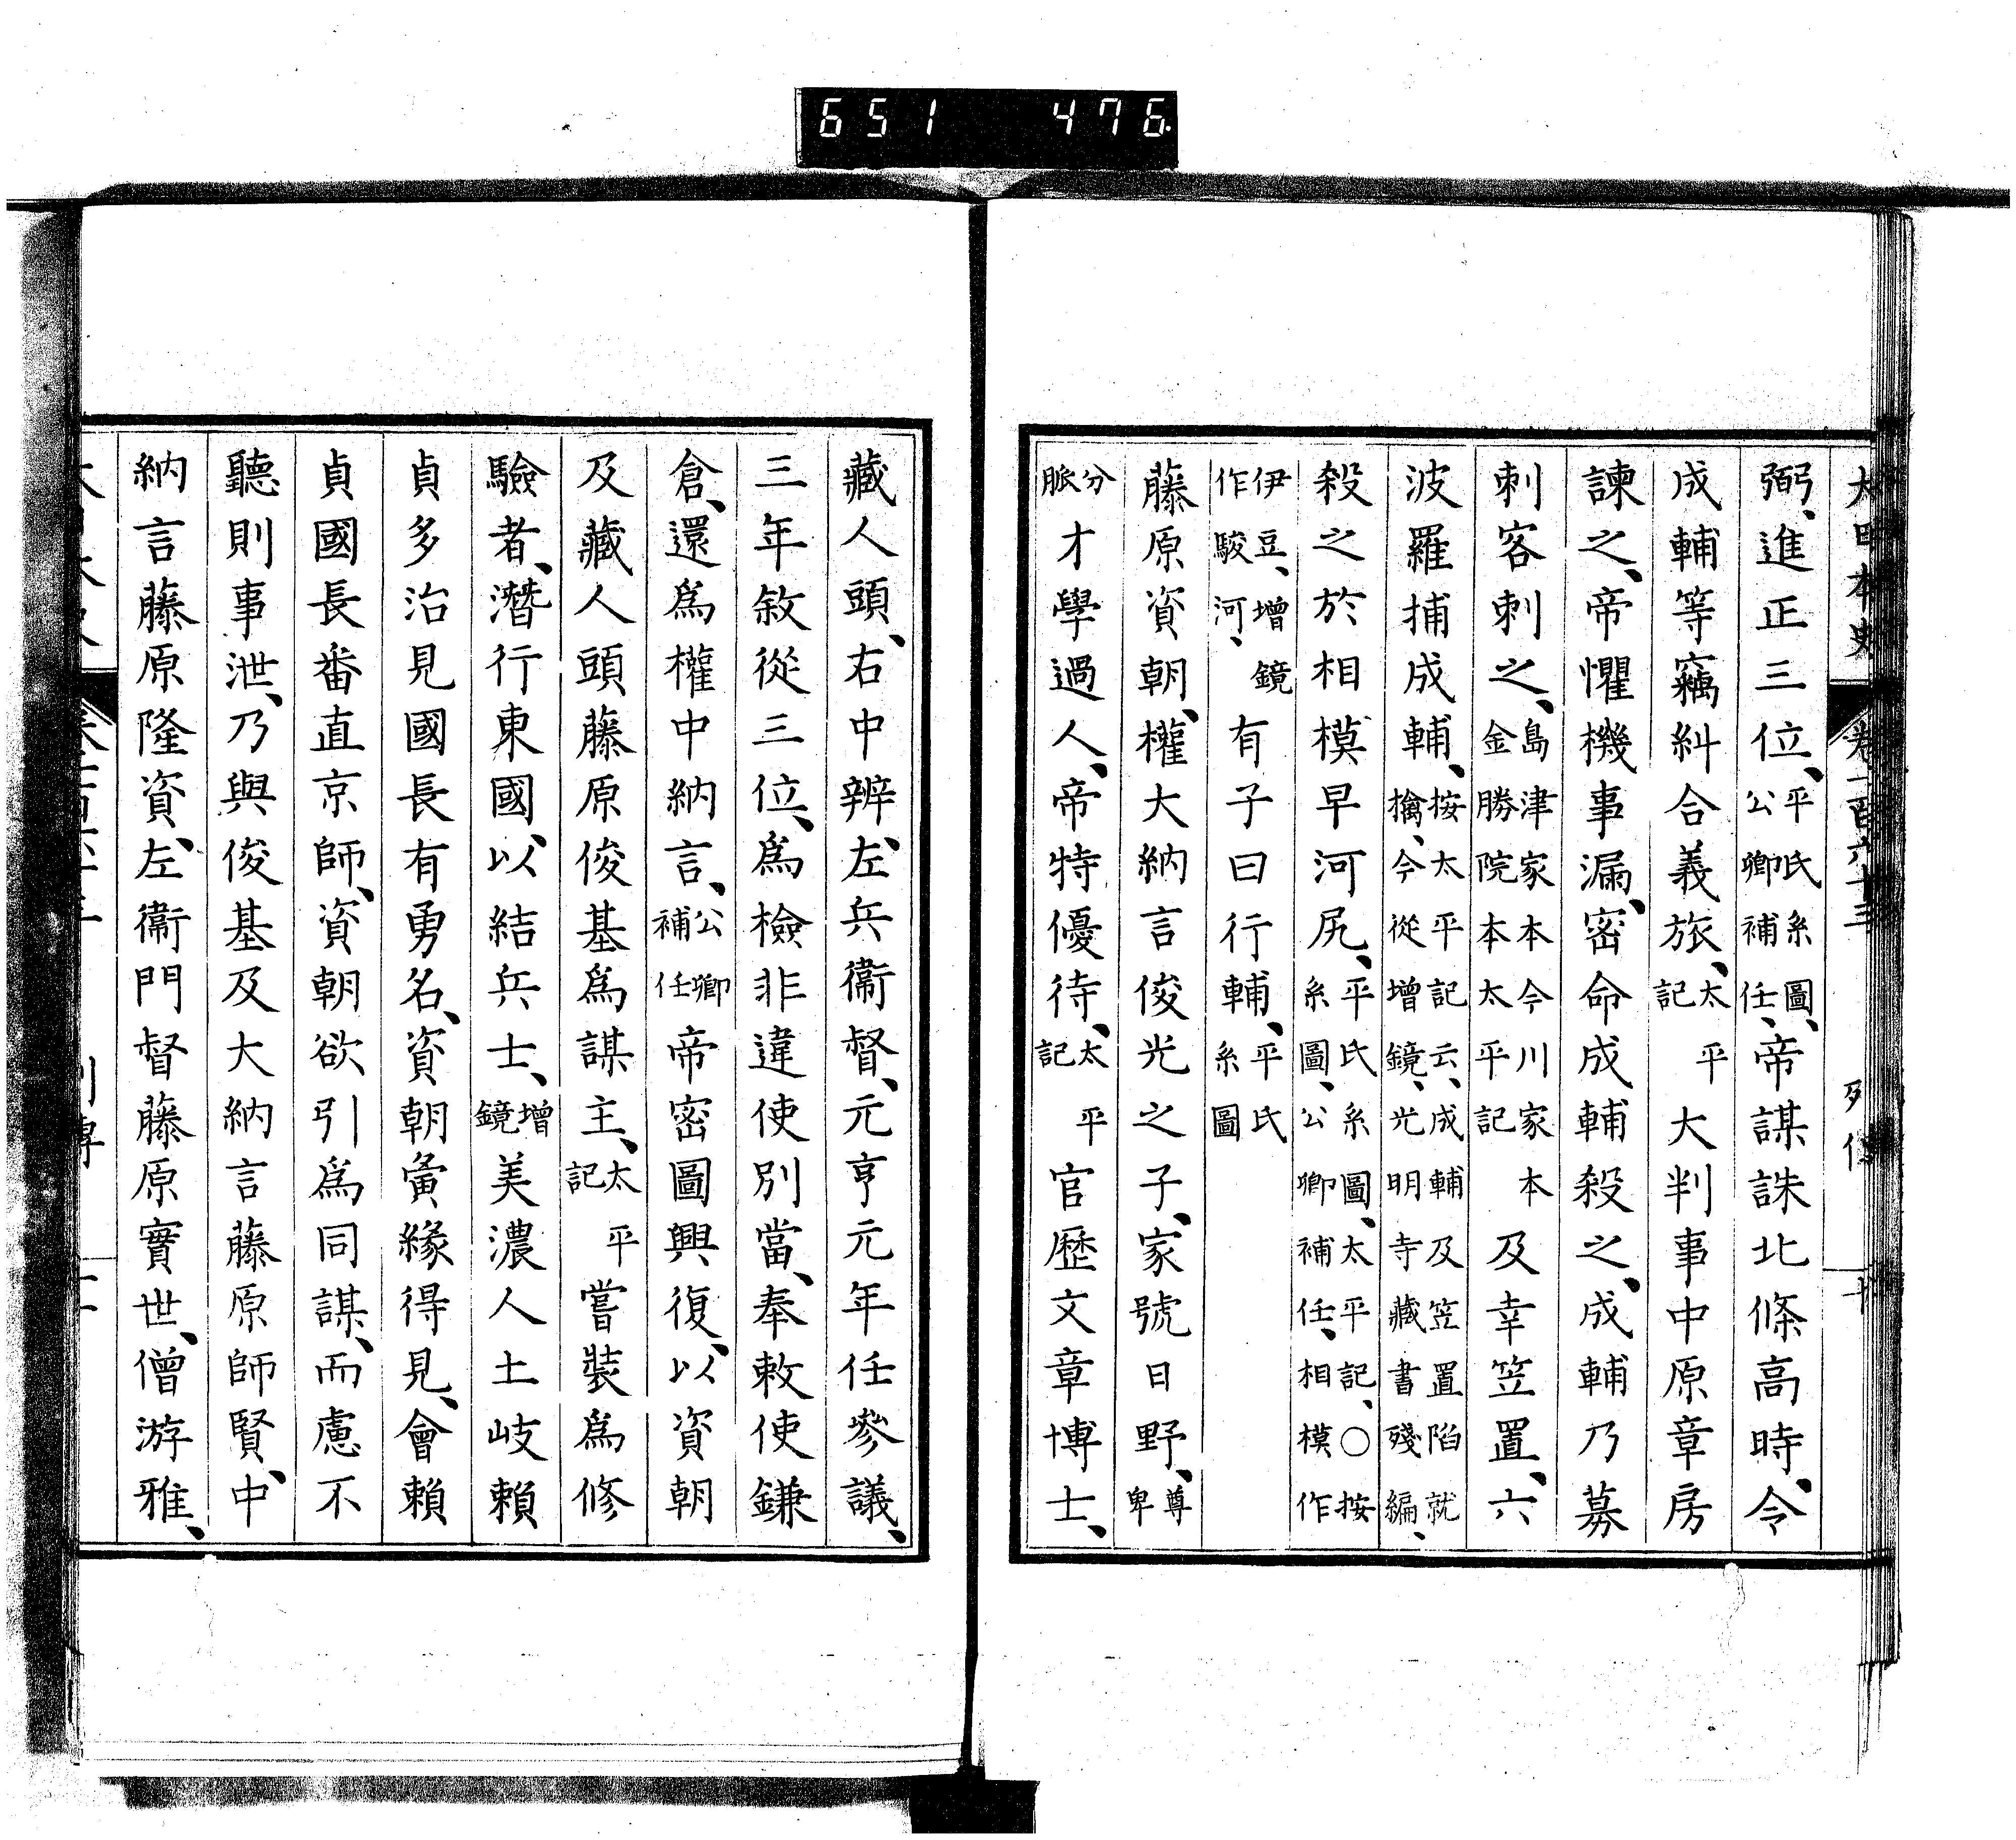 651 476
大日本史 卷一百六十三 列傳 十
弼、進正三位、平氏系圖、公卿補任、帝謀誅北條高時、令
成輔等竊糾合義旅、太平記大判事中原章房
諫之、帝懼機事漏、密命成輔殺之、成輔乃募
刺客刺之、島津家本今川家本金勝院本太平記及幸笠置、六
波羅捕成輔、按太平記云、成輔及笠置陷就擒、今從增鏡、光明寺藏書殘編、
殺之於相模早河尻、平氏系圖、太平記、〇按系圖、公卿補任、相模作
伊豆、增鏡作駿河、有子曰行輔、平氏系圖
藤原資朝、權大納言俊光之子、家號日野、尊卑
分脈才學過人、帝特優待、太平記官歷文章博士、
藏人頭、右中辨、左兵衞督、元亨元年任參議、
三年敘從三位、爲檢非違使別當、奉敕使鎌
倉、還爲權中納言、公卿補任帝密圖興復、以資朝
及藏人頭藤原俊基爲謀主、太平記嘗裝爲修
驗者、潛行東國、以結兵士、增鏡美濃人土岐賴
貞多治見國長有勇名、資朝夤緣得見、會賴
貞國長番直京師、資朝欲引爲同謀、而慮不
聽則事泄、乃與俊基及大納言藤原師賢、中
納言藤原隆資、左衞門督藤原實世、僧游雅、